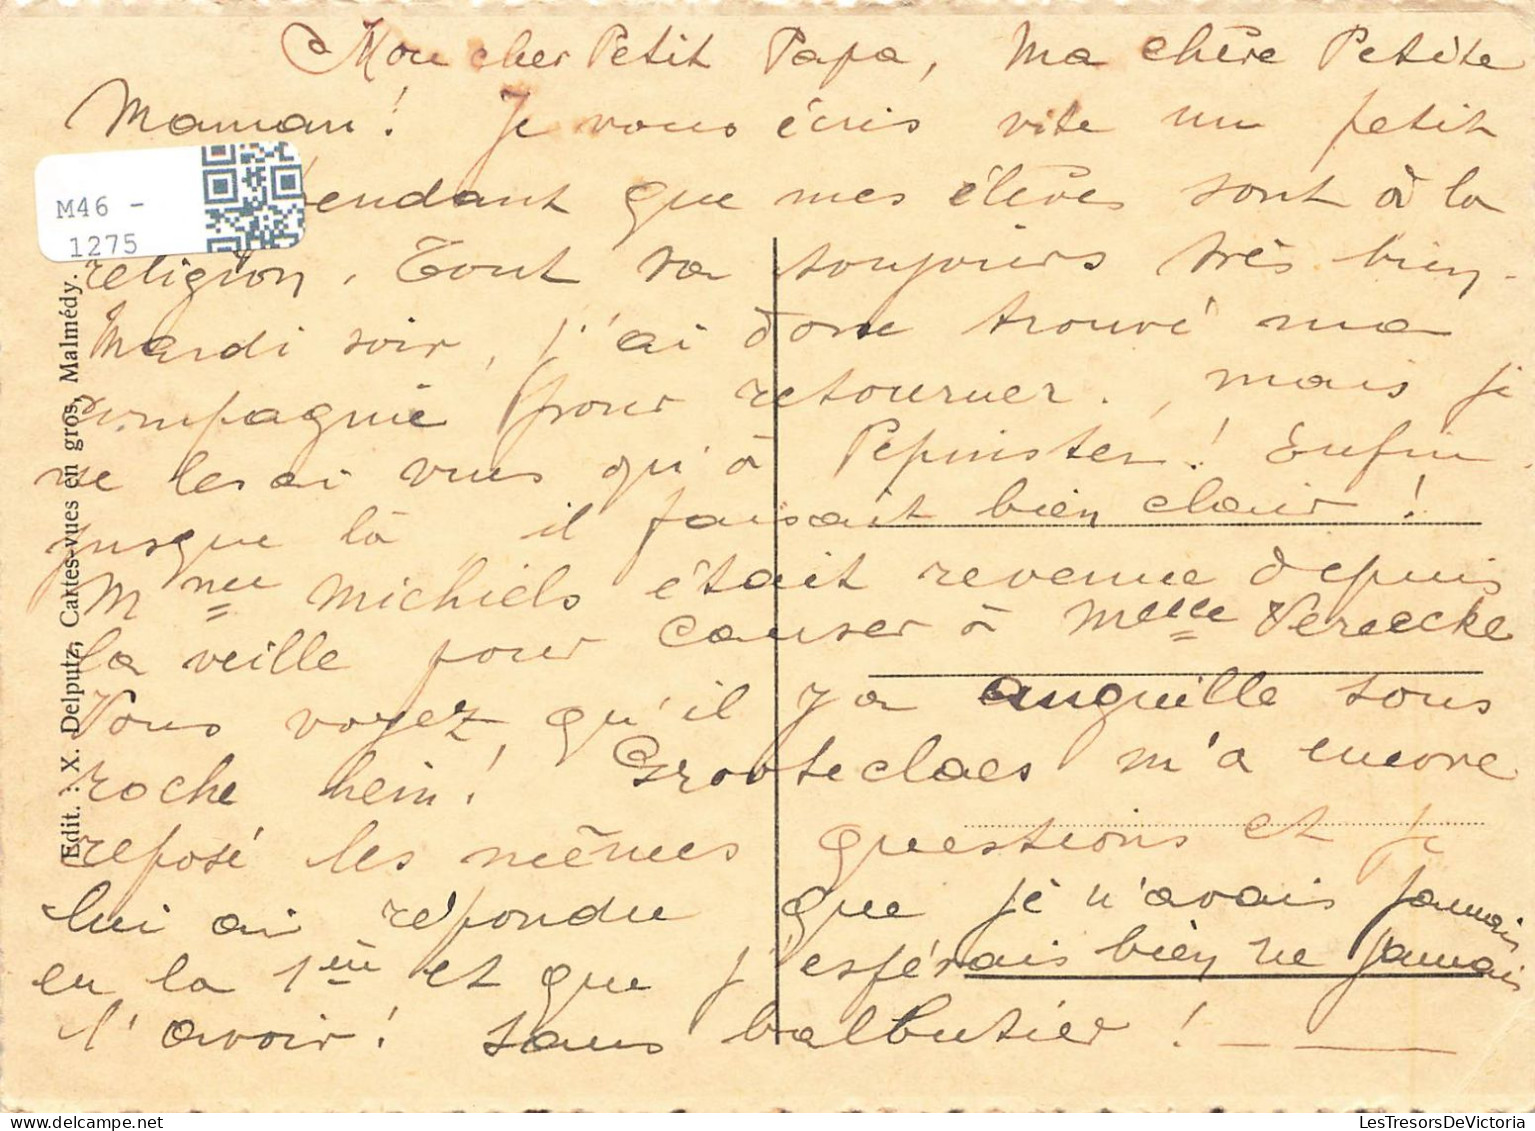 Mon cher Petit Papa, Ma chère Petite
Maman! Je vous écris vite un petit
pendant que mes élèves sont à la
religion. Tout va toujours très bien.
Mardi soir, j'ai donc trouvé ma
compagnie pour retourner., mais je
ne les ai vus qu'à Pepinster! Enfin
jusque là il faisait bien clair!
Mme Michiels était revenue depuis
la veille pour causer à Melle Vereecke
Vous voyez qu'il y a anguille sous
roche hein! Grooteclaes m'a encore
reposé les mêmes questions et je
lui ai répondu que je n'avais jamais
eu la 1ère et que j'espérais bien ne jamais
l'avoir! sans balbutier!
M46 -
1275
Edit. : X. Delputz, Cartes-vues en gros, Malmédy.
LesTresorsDeVictoria